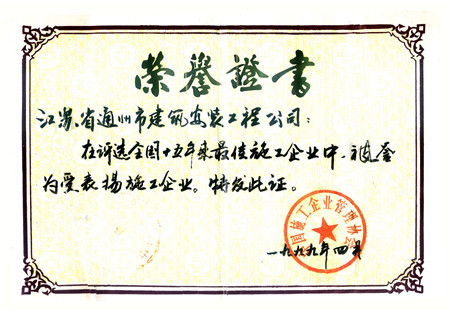 荣誉證書
江苏省通州市建筑安装工程公司:
在评选全国十五年来最佳施工企业中,被签
为受表揚施工企业。特发此证。
国施工企业管理协会
一九九九年四月